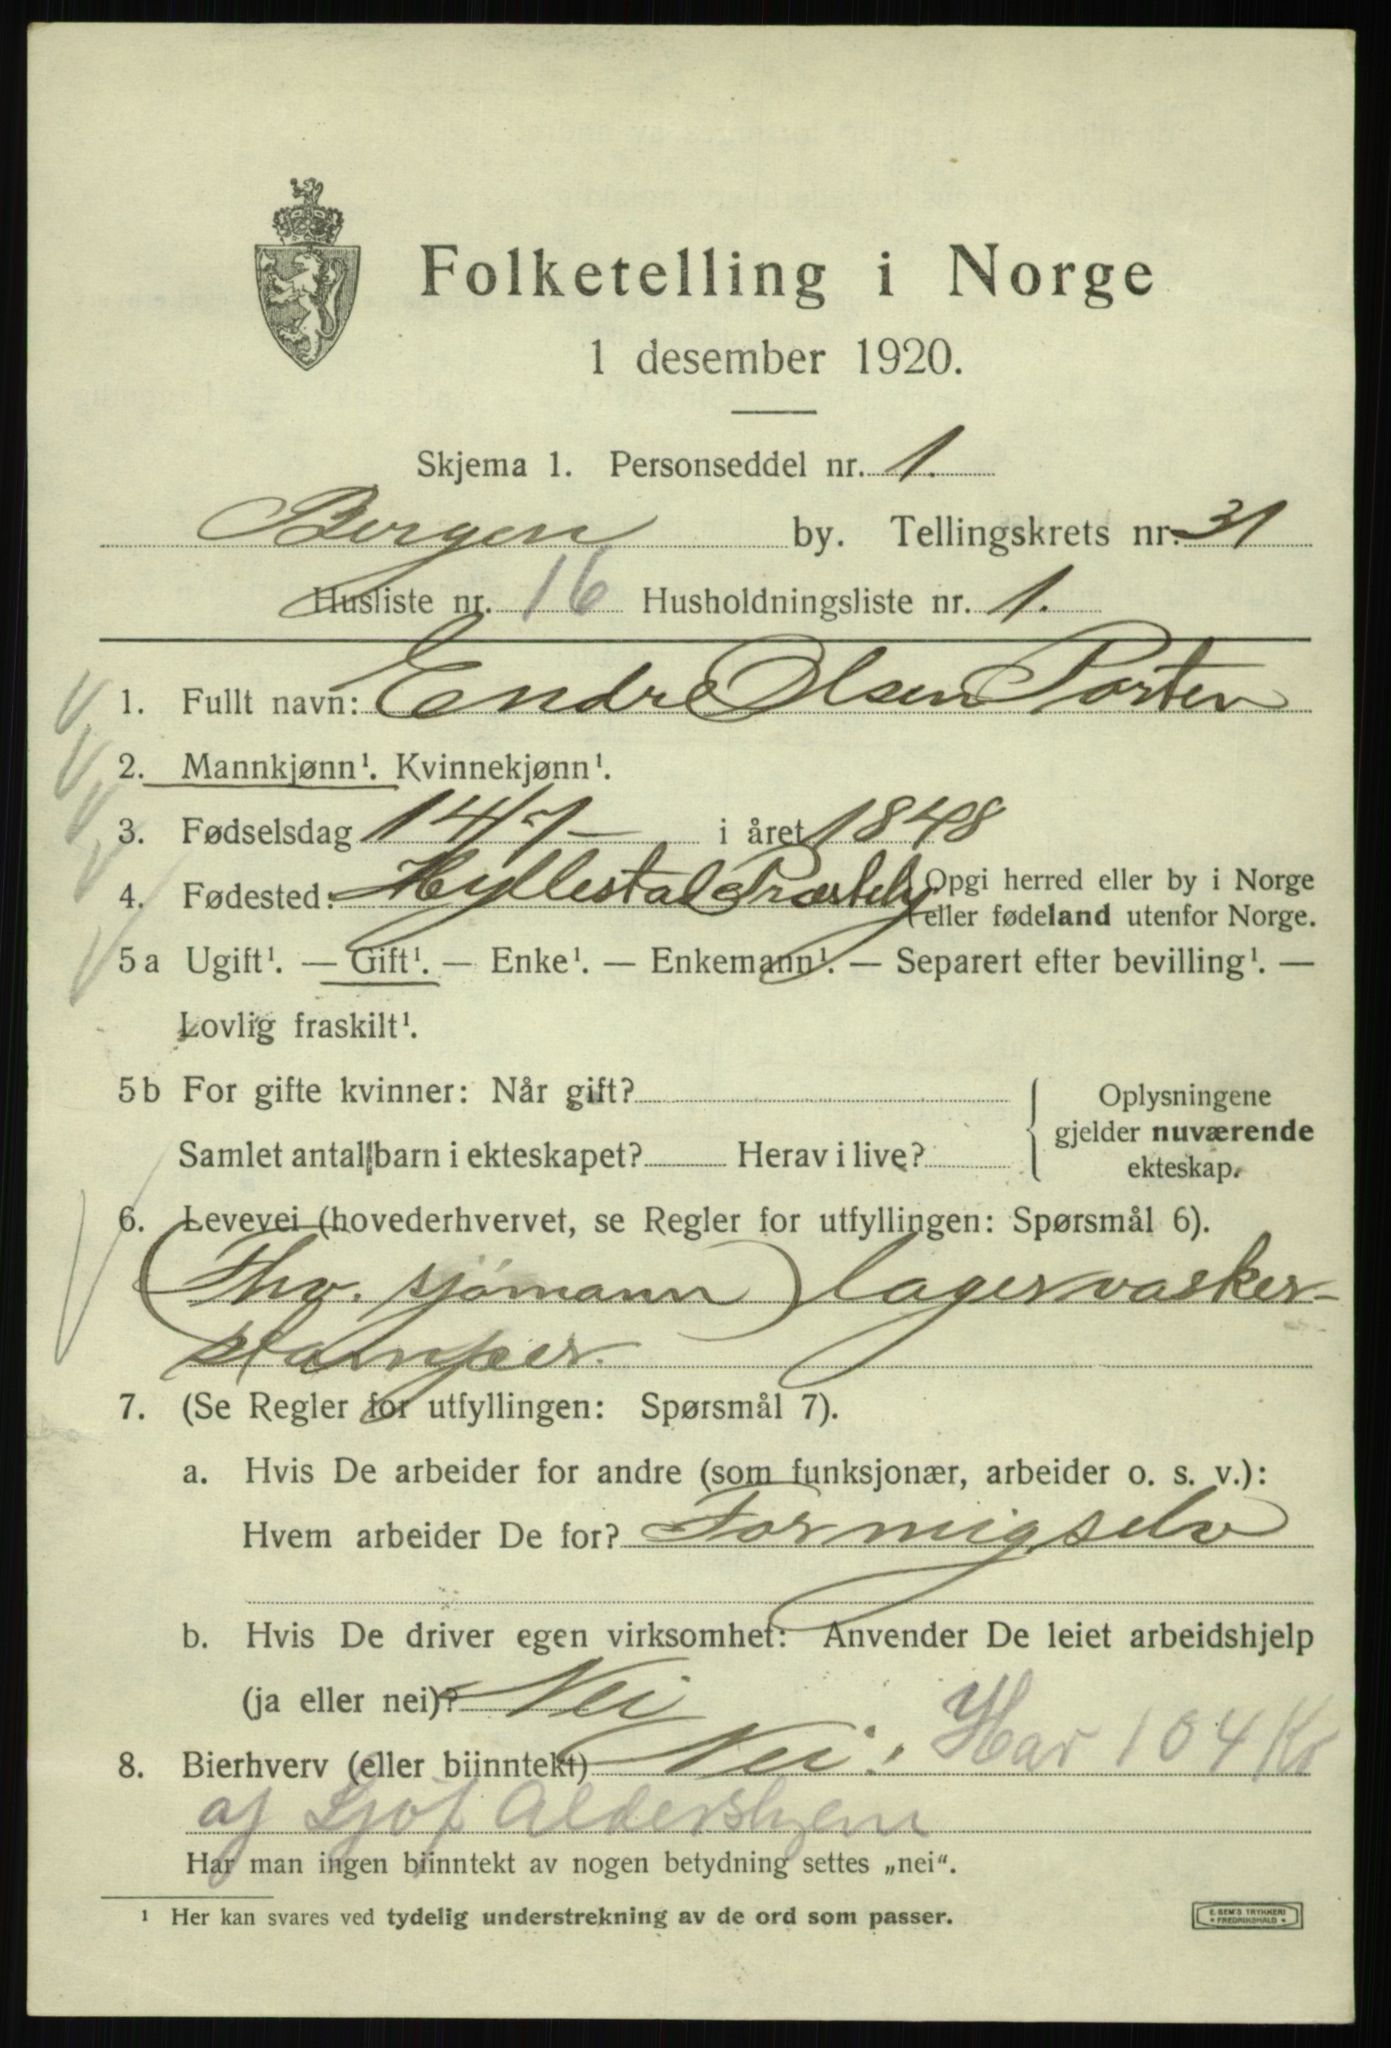 Folketelling i Norge
1 desember 1920.
Skjema 1. Personseddel nr. 1.
Bergen by. Tellingskrets nr. 31
Husliste nr. 16 Husholdningsliste nr. 1.
1. Fullt navn: Endre Olsen Porten
2. Mannkjønn¹. Kvinnekjønn¹.
3. Fødselsdag 14/7 - i året 1848
4. Fødested: Hyllestal Præstelg (Opgi herred eller by i Norge
eller fødeland utenfor Norge.
5a Ugift¹. — Gift¹. — Enke¹. — Enkemann¹. — Separert efter bevilling¹. —
Lovlig fraskilt¹.
5b For gifte kvinner: Når gift?
Samlet antal barn i ekteskapet? Herav i live?
Oplysningene
gjelder nuværende
ekteskap.
6. Levevei (hovederhvervet, se Regler for utfyllingen: Spørsmål 6).
(Fhv. sjømann) lagervasker-
stamper.
7. (Se Regler for utfyllingen: Spørsmål 7).
a. Hvis De arbeider for andre (som funksjonær, arbeider o. s. v.):
Hvem arbeider De for? For migselv
b. Hvis De driver egen virksomhet: Anvender De leiet arbeidshjelp
(ja eller nei)? Nei
8. Bierhverv (eller biinntekt) Nei. Har 104 Kr
af Sjøf Aldershjem
Har man ingen biinntekt av nogen betydning settes „nei“.
¹ Her kan svares ved tydelig understrekning av de ord som passer.
E. SEM'S TRYKKERI
FREDRIKSHALD